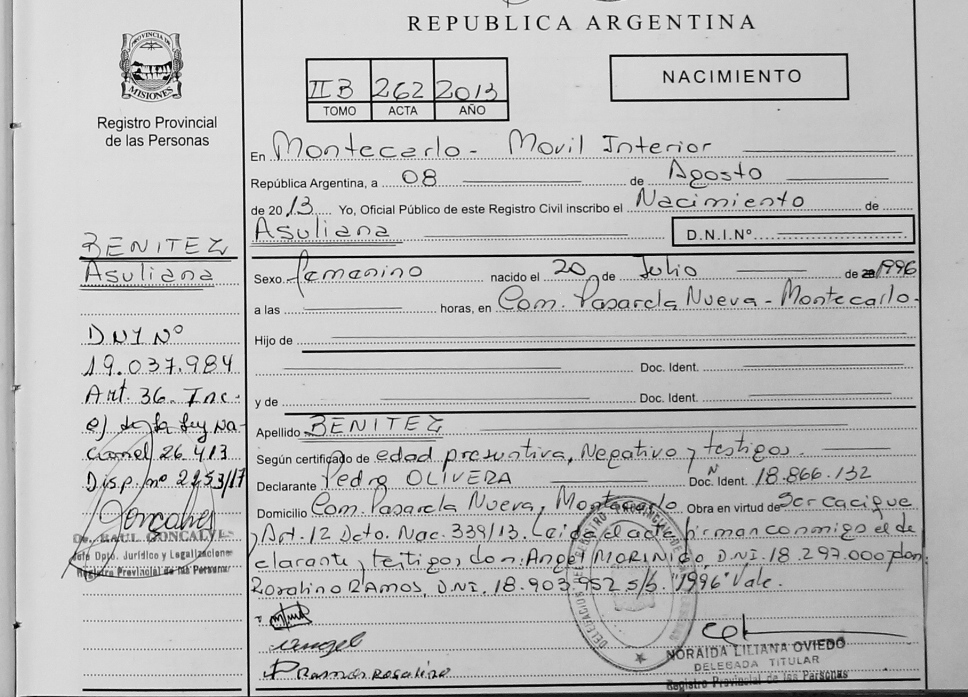 REPUBLICA ARGENTINA
PROVINCIA DE
MISIONES
Registro Provincial
de las Personas
II B 262 2013
TOMO ACTA AÑO
NACIMIENTO
En Montecarlo - Movil Interior
República Argentina, a 08 de Agosto
de 2013 Yo, Oficial Público de este Registro Civil inscribo el Nacimiento de
Asuliana D.N.I.Nº
Sexo femenino nacido el 20 de Julio de 1996
a las horas, en Com. Pasarela Nueva - Montecarlo-
Hijo de
Doc. Ident.
y de Doc. Ident.
Apellido BENITEZ
Según certificado de edad presuntiva, Negativo y testigos.
Declarante Pedro OLIVERA Doc. Ident. Nº 18.866.132
Domicilio Com. Pasarela Nueva, Montecarlo Obra en virtud de Ser Cacique
y Art. 12 Dcto. Nac. 339/13. Leida el acta firman conmigo el de
clarante y testigos, don Angel MORINIGO, D.N.I. 18.297.000 y don
Rosalino RAMOS, D.N.I. 18.903.952 s/b "1996" Vale.
angel
Ramos rosalino
NORAIDA LILIANA OVIEDO
DELEGADA TITULAR
Registro Provincial de las Personas
BENITEZ
Asuliana
DNI Nº
19.037.984
Art. 36 Inc.
e) de la ley Na-
cional 26.413
Disp. nº 2253/17
Goncalves
Dr. RAUL GONCALVES
Jefe Dpto. Jurídico y Legalizaciones
Registro Provincial de las Personas